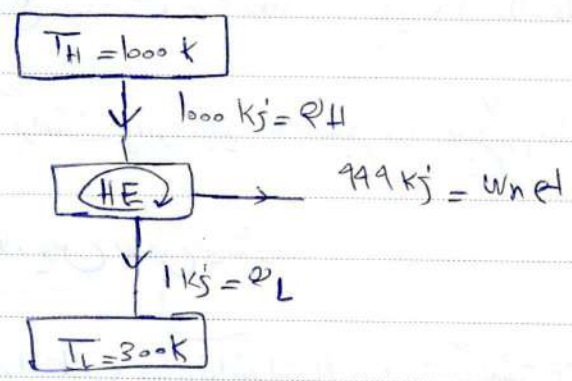 T_H = 1000 K
1000 kj = QH
HE
999 kj = Wnet
1 kj = QL
T_L = 300 K